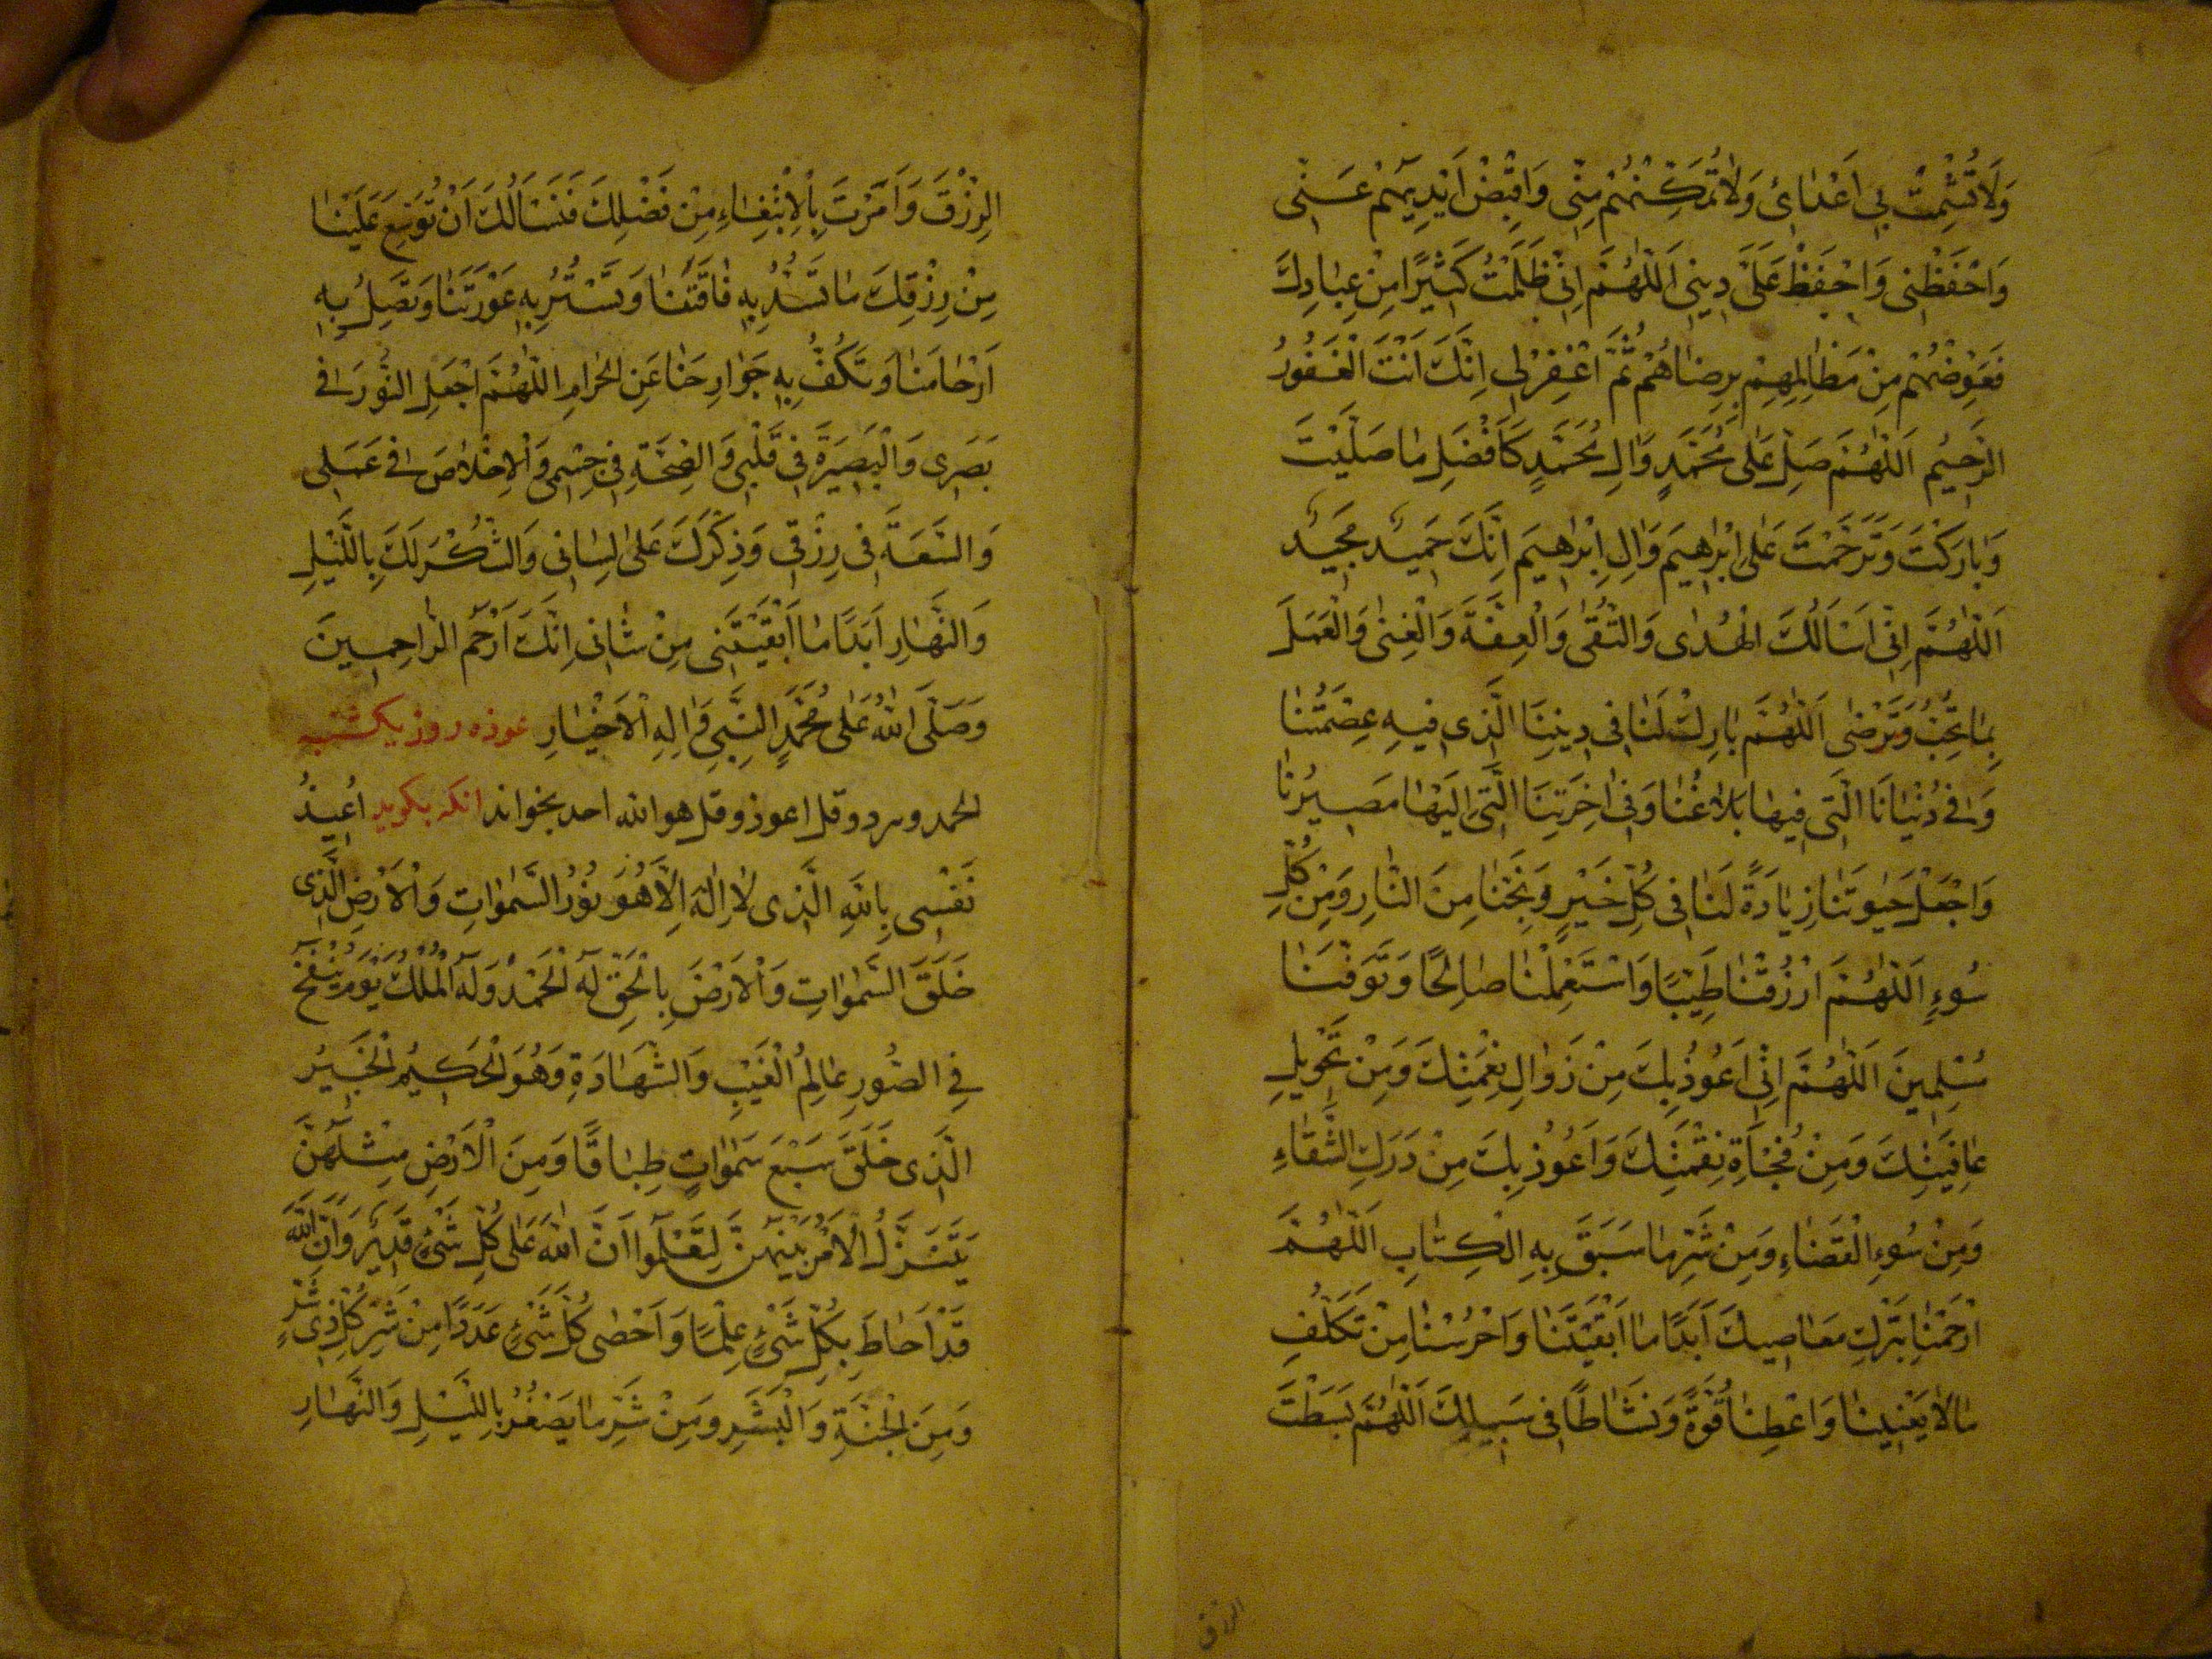 وَلَاتُشْمِتْ بِي اَعْدَائِ وَلَاتُمَكِّنْهُمْ مِنِّي وَاقْبِضْ اَيْدِيَهُمْ عَنِّي
وَاحْفَظْنِي وَاحْفَظْ عَلَيَّ دِينِي اَللّٰهُمَّ اِنِّي ظَلَمْتُ كَثِيرًا مِنْ عِبَادِكَ
فَعَوِّضْهُمْ مِنْ مَظَالِمِهِمْ بِرِضَاهُمْ ثُمَّ اغْفِرْلِي اِنَّكَ اَنْتَ الْغَفُورُ
الرَّحِيمُ اَللّٰهُمَّ صَلِّ عَلٰى مُحَمَّدٍ وَاٰلِ مُحَمَّدٍ كَاَفْضَلِ مَا صَلَّيْتَ
وَبَارَكْتَ وَتَرَحَّمْتَ عَلٰى اِبْرٰهِيمَ وَاٰلِ اِبْرٰهِيمَ اِنَّكَ حَمِيدٌ مَجِيدٌ
اَللّٰهُمَّ اِنِّي اَسْاَلُكَ الْهُدٰى وَالتُّقٰى وَالْعِفَّةَ وَالْغِنٰى وَالْعَمَلَ
بِمَا تُحِبُّ وَتَرْضٰى اَللّٰهُمَّ بَارِكْ لَنَا فِي دِينِنَا الَّذِي فِيهِ عِصْمَتُنَا
وَفِي دُنْيَانَا الَّتِي فِيهَا بَلَاغُنَا وَفِي اٰخِرَتِنَا الَّتِي اِلَيْهَا مَصِيرُنَا
وَاجْعَلْ حَيٰوتَنَا زِيَادَةً لَنَا فِي كُلِّ خَيْرٍ وَنَجِّنَا مِنَ النَّارِ وَمِنْ كُلِّ
سُوءٍ اَللّٰهُمَّ ارْزُقْنَا طَيِّبًا وَاسْتَعْمِلْنَا صَالِحًا وَتَوَفَّنَا
مُسْلِمِينَ اَللّٰهُمَّ اِنِّي اَعُوذُ بِكَ مِنْ زَوَالِ نِعْمَتِكَ وَمِنْ تَحْوِيلِ
عَافِيَتِكَ وَمِنْ فُجْاَةِ نِقْمَتِكَ وَاَعُوذُ بِكَ مِنْ دَرَكِ الشَّقَاءِ
وَمِنْ سُوءِ الْقَضَاءِ وَمِنْ شَرِّ مَا سَبَقَ بِهِ الْكِتَابِ اَللّٰهُمَّ
ارْحَمْنَا بِتَرْكِ مَعَاصِيكَ اَبَدًا مَا اَبْقَيْتَنَا وَاحْرُسْنَا مِنْ تَكَلُّفِ
مَالَا يَعْنِينَا وَاعْطِنَا قُوَّةً وَنَشَاطًا فِي سَبِيلِكَ اَللّٰهُمَّ بَسَطْتَ
الرزق
الرِّزْقَ وَاَمَرْتَ بِالْاِبْتِغَاءِ مِنْ فَضْلِكَ فَنَسْاَلُكَ اَنْ تُوَسِّعَ عَلَيْنَا
مِنْ رِزْقِكَ مَا تَسُدُّ بِهِ فَاقَتَنَا وَتَسْتُرُ بِهِ عَوْرَتَنَا وَتَصِلُ بِهِ
اَرْحَامَنَا وَتَكُفُّ بِهِ جَوَارِحَنَا عَنِ الْحَرَامِ اَللّٰهُمَّ اجْعَلِ النُّورَ فِي
بَصَرِي وَالْبَصِيرَةَ فِي قَلْبِي وَالصِّحَّةِ فِي جِسْمِي وَالْاِخْلَاصَ فِي عَمَلِي
وَالسَّعَةَ فِي رِزْقِي وَذِكْرَكَ عَلٰى لِسَانِي وَالشُّكْرَ لَكَ بِاللَّيْلِ
وَالنَّهَارِ اَبَدًا مَا اَبْقَيْتَنِي مِنْ شَانِي اِنَّكَ اَرْحَمُ الرَّاحِمِينَ
وَصَلَّى اللّٰهُ عَلٰى مُحَمَّدٍ النَّبِيِّ وَاٰلِهِ الْاَخْيَارِ عوذه روز يكشنبه
الحمد وهر دو قل اعوذ و قل هو الله احد بخواند انكه بكويد اُعِيذُ
نَفْسِي بِاللّٰهِ الَّذِي لَا اِلٰهَ اِلَّا هُوَ نُوْرُ السَّمٰوَاتِ وَالْاَرْضِ الَّذِي
خَلَقَ السَّمٰوَاتِ وَالْاَرْضَ بِالْحَقِّ لَهُ الْحَمْدُ وَلَهُ الْمُلْكُ يَوْمَ يُنْفَخُ
فِي الصُّورِ عَالِمُ الْغَيْبِ وَالشَّهَادَةِ وَهُوَ الْحَكِيمُ الْخَبِيرُ
الَّذِي خَلَقَ سَبْعَ سَمٰوَاتٍ طِبَاقًا وَمِنَ الْاَرْضِ مِثْلَهُنَّ
يَتَنَزَّلُ الْاَمْرُ بَيْنَهُنَّ لِتَعْلَمُوا اَنَّ اللّٰهَ عَلٰى كُلِّ شَيْءٍ قَدِيرٌ وَاَنَّ اللّٰهَ
قَدْ اَحَاطَ بِكُلِّ شَيْءٍ عِلْمًا وَاَحْصٰى كُلَّ شَيْءٍ عَدَدًا مِنْ شَرِّ كُلِّ ذِي شَرٍّ
وَمِنَ الْجِنَّةِ وَالْبَشَرِ وَمِنْ شَرِّ مَا يَصْفُرُ بِاللَّيْلِ وَالنَّهَارِ